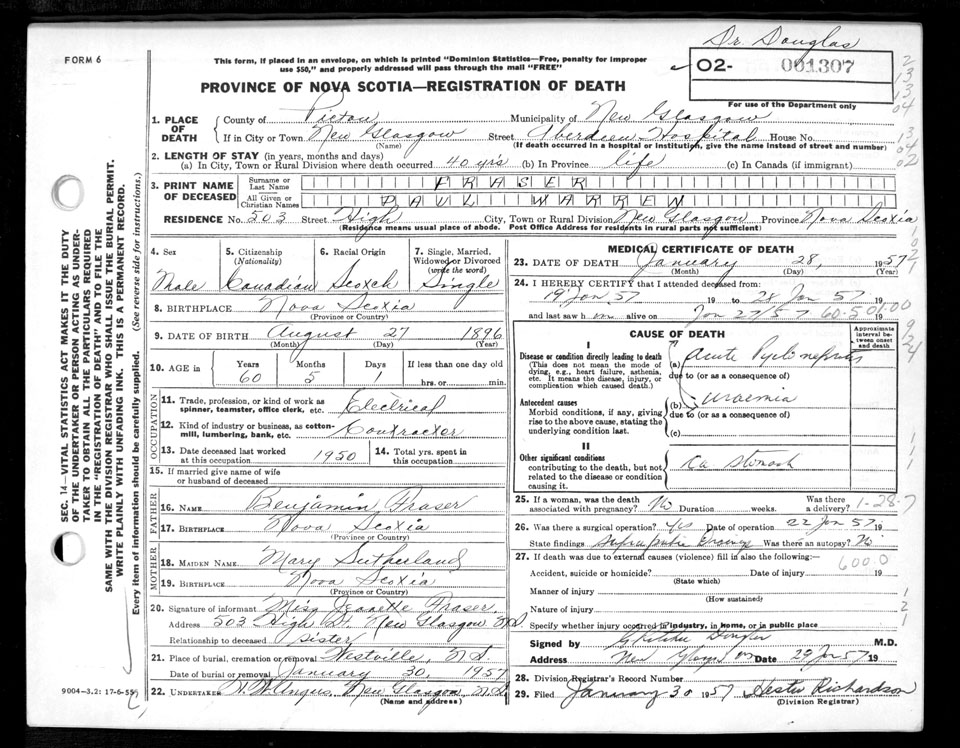 Dr. Douglas
FORM 6
This form, if placed in an envelope, on which is printed "Dominion Statistics—Free, penalty for improper
use $50," and properly addressed will pass through the mail "FREE"
O2- 001307
PROVINCE OF NOVA SCOTIA—REGISTRATION OF DEATH
For use of the Department only
1. PLACE OF DEATH
County of Pictou Municipality of New Glasgow
If in City or Town New Glasgow Street Aberdeen Hospital House No.
(Name) (If death occurred in a hospital or institution, give the name instead of street and number)
2. LENGTH OF STAY (in years, months and days)
(a) In City, Town or Rural Division where death occurred 40 yrs (b) In Province life (c) In Canada (if immigrant)
3. PRINT NAME OF DECEASED
Surname or Last Name FRASER
All Given or Christian Names PAUL WARREN
RESIDENCE No. 503 Street High City, Town or Rural Division New Glasgow Province Nova Scotia
(Residence means usual place of abode. Post Office Address for residents in rural parts not sufficient)
4. Sex
Male
5. Citizenship
(Nationality)
Canadian
6. Racial Origin
Scotch
7. Single, Married, Widowed or Divorced
(write the word)
Single
8. BIRTHPLACE Nova Scotia
(Province or Country)
9. DATE OF BIRTH August 27 1896
(Month) (Day) (Year)
10. AGE in
Years Months Days If less than one day old
60 5 1 hrs. or min.
OCCUPATION
11. Trade, profession, or kind of work as
spinner, teamster, office clerk, etc. Electrical
12. Kind of industry or business, as cotton-
mill, lumbering, bank, etc. Contractor
13. Date deceased last worked
at this occupation 1950
14. Total yrs. spent in
this occupation
15. If married give name of wife
or husband of deceased
FATHER
16. NAME Benjamin Fraser
17. BIRTHPLACE Nova Scotia
(Province or Country)
MOTHER
18. MAIDEN NAME Mary Sutherland
19. BIRTHPLACE Nova Scotia
(Province or Country)
20. Signature of informant Miss Jeanette Fraser
Address 503 High St. New Glasgow N.S.
Relationship to deceased sister
21. Place of burial, cremation or removal Westville, N.S
Date of burial or removal January 30, 1957
22. UNDERTAKER Angus, New Glasgow, N.S
(Name and address)
MEDICAL CERTIFICATE OF DEATH
23. DATE OF DEATH January 28, 1957
(Month) (Day) (Year)
24. I HEREBY CERTIFY that I attended deceased from:
19 Jan 57 19 to 28 Jan 57 19
and last saw h im alive on Jan 27/57 19
CAUSE OF DEATH
Approximate interval between onset and death
I
Disease or condition directly leading to death
(This does not mean the mode of
dying, e.g., heart failure, asthenia,
etc. It means the disease, injury, or
complication which caused death.)
(a) Acute
due to (or as a consequence of)
Antecedent causes
Morbid conditions, if any, giving
rise to the above cause, stating the
underlying condition last.
(b) Uraemia
due to (or as a consequence of)
(c)
II
Other significant conditions
contributing to the death, but not
related to the disease or condition
causing it.
Ca stomach
25. If a woman, was the death
associated with pregnancy? No Duration weeks.
Was there
a delivery?
1-28-7
26. Was there a surgical operation? Yes Date of operation 22 Jan 57 19
State findings Was there an autopsy? No
27. If death was due to external causes (violence) fill in also the following:—
600.0
Accident, suicide or homicide? Date of injury 19
(State which)
Manner of injury
(How sustained)
Nature of injury
Specify whether injury occurred in industry, in home, or in public place
Signed by M.D.
Address New Glasgow Date 29 Jan 57 19
28. Division Registrar's Record Number
29. Filed January 30 1957 Hester Richardson
(Division Registrar)
SEC. 14—VITAL STATISTICS ACT MAKES IT THE DUTY
OF THE UNDERTAKER OR PERSON ACTING AS UNDER-
TAKER TO OBTAIN ALL THE PARTICULARS REQUIRED
IN THE "REGISTRATION OF DEATH" AND TO FILE THE
SAME WITH THE DIVISION REGISTRAR WHO SHALL ISSUE THE BURIAL PERMIT.
WRITE PLAINLY WITH UNFADING INK. THIS IS A PERMANENT RECORD.
Every item of information should be carefully supplied. (See reverse side for instructions.)
9004-3,2: 17-6-55